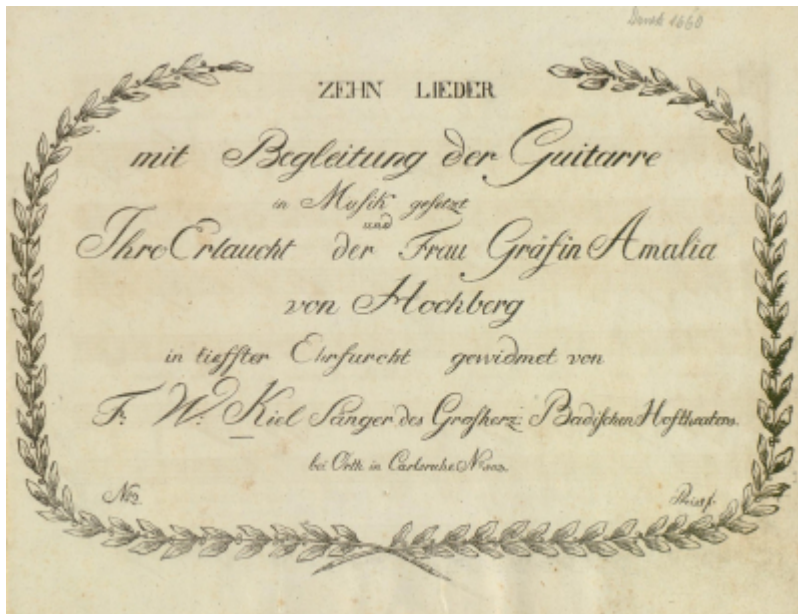 Druck 1660
ZEHN LIEDER
mit Begleitung der Guitarre
in Musik gesetzt
und
Ihro Erlaucht der Frau Gräfin Amalia
von Hochberg
in tieffter Ehrfurcht gewidmet von
F. W. Kiel Sänger des Grosherz: Badischen Hoftheaters.
bei Orth in Carlsruhe N